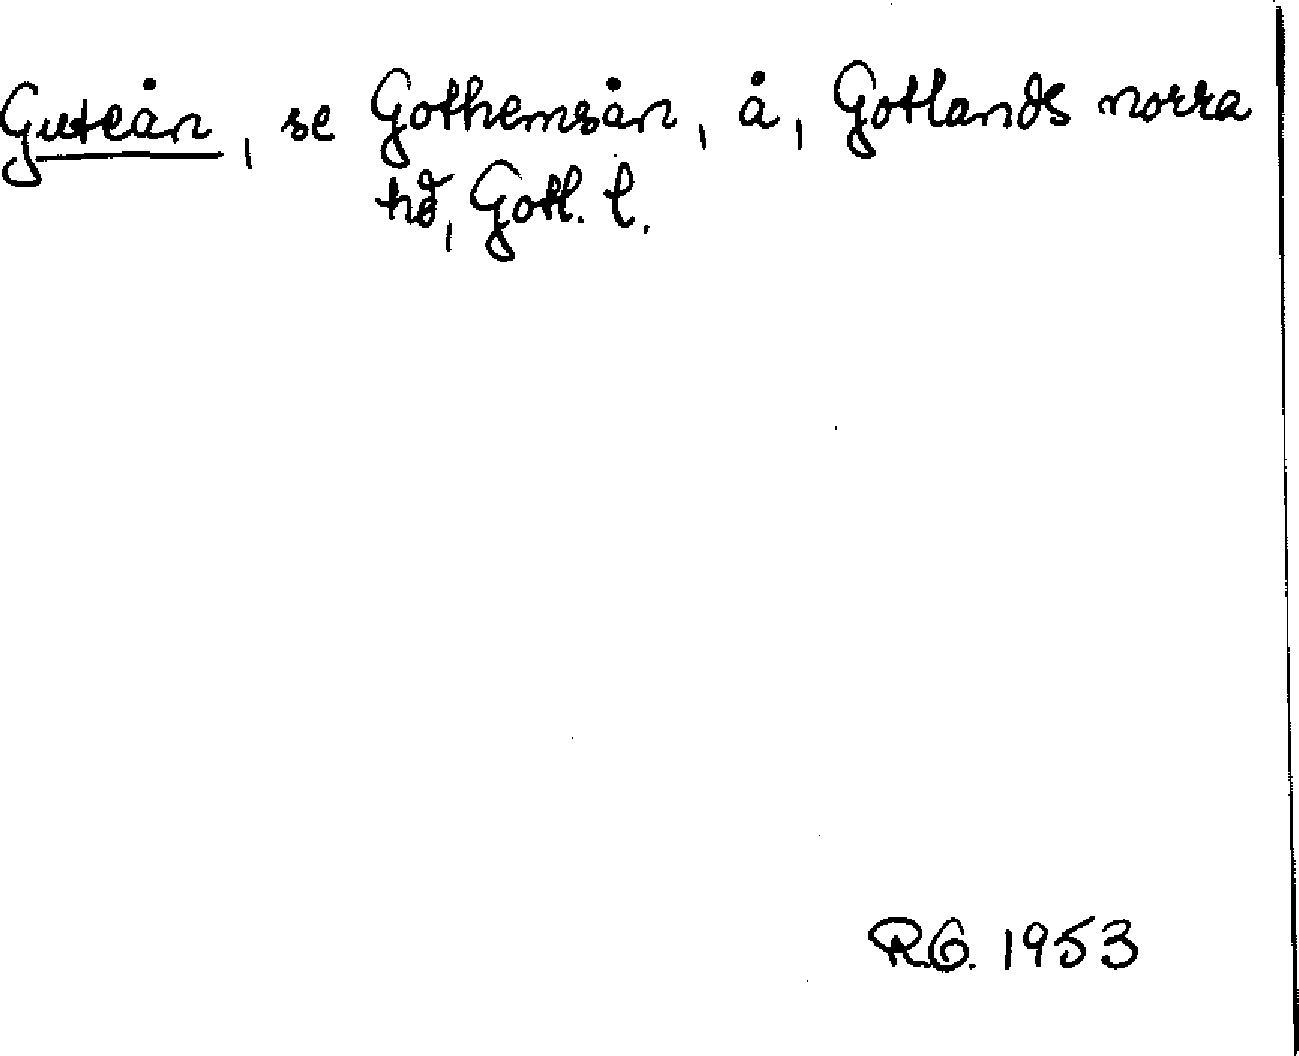 Guteån, se Gothemsån, å, Gotlands norra
hd, Gotl. l.
R.G. 1953